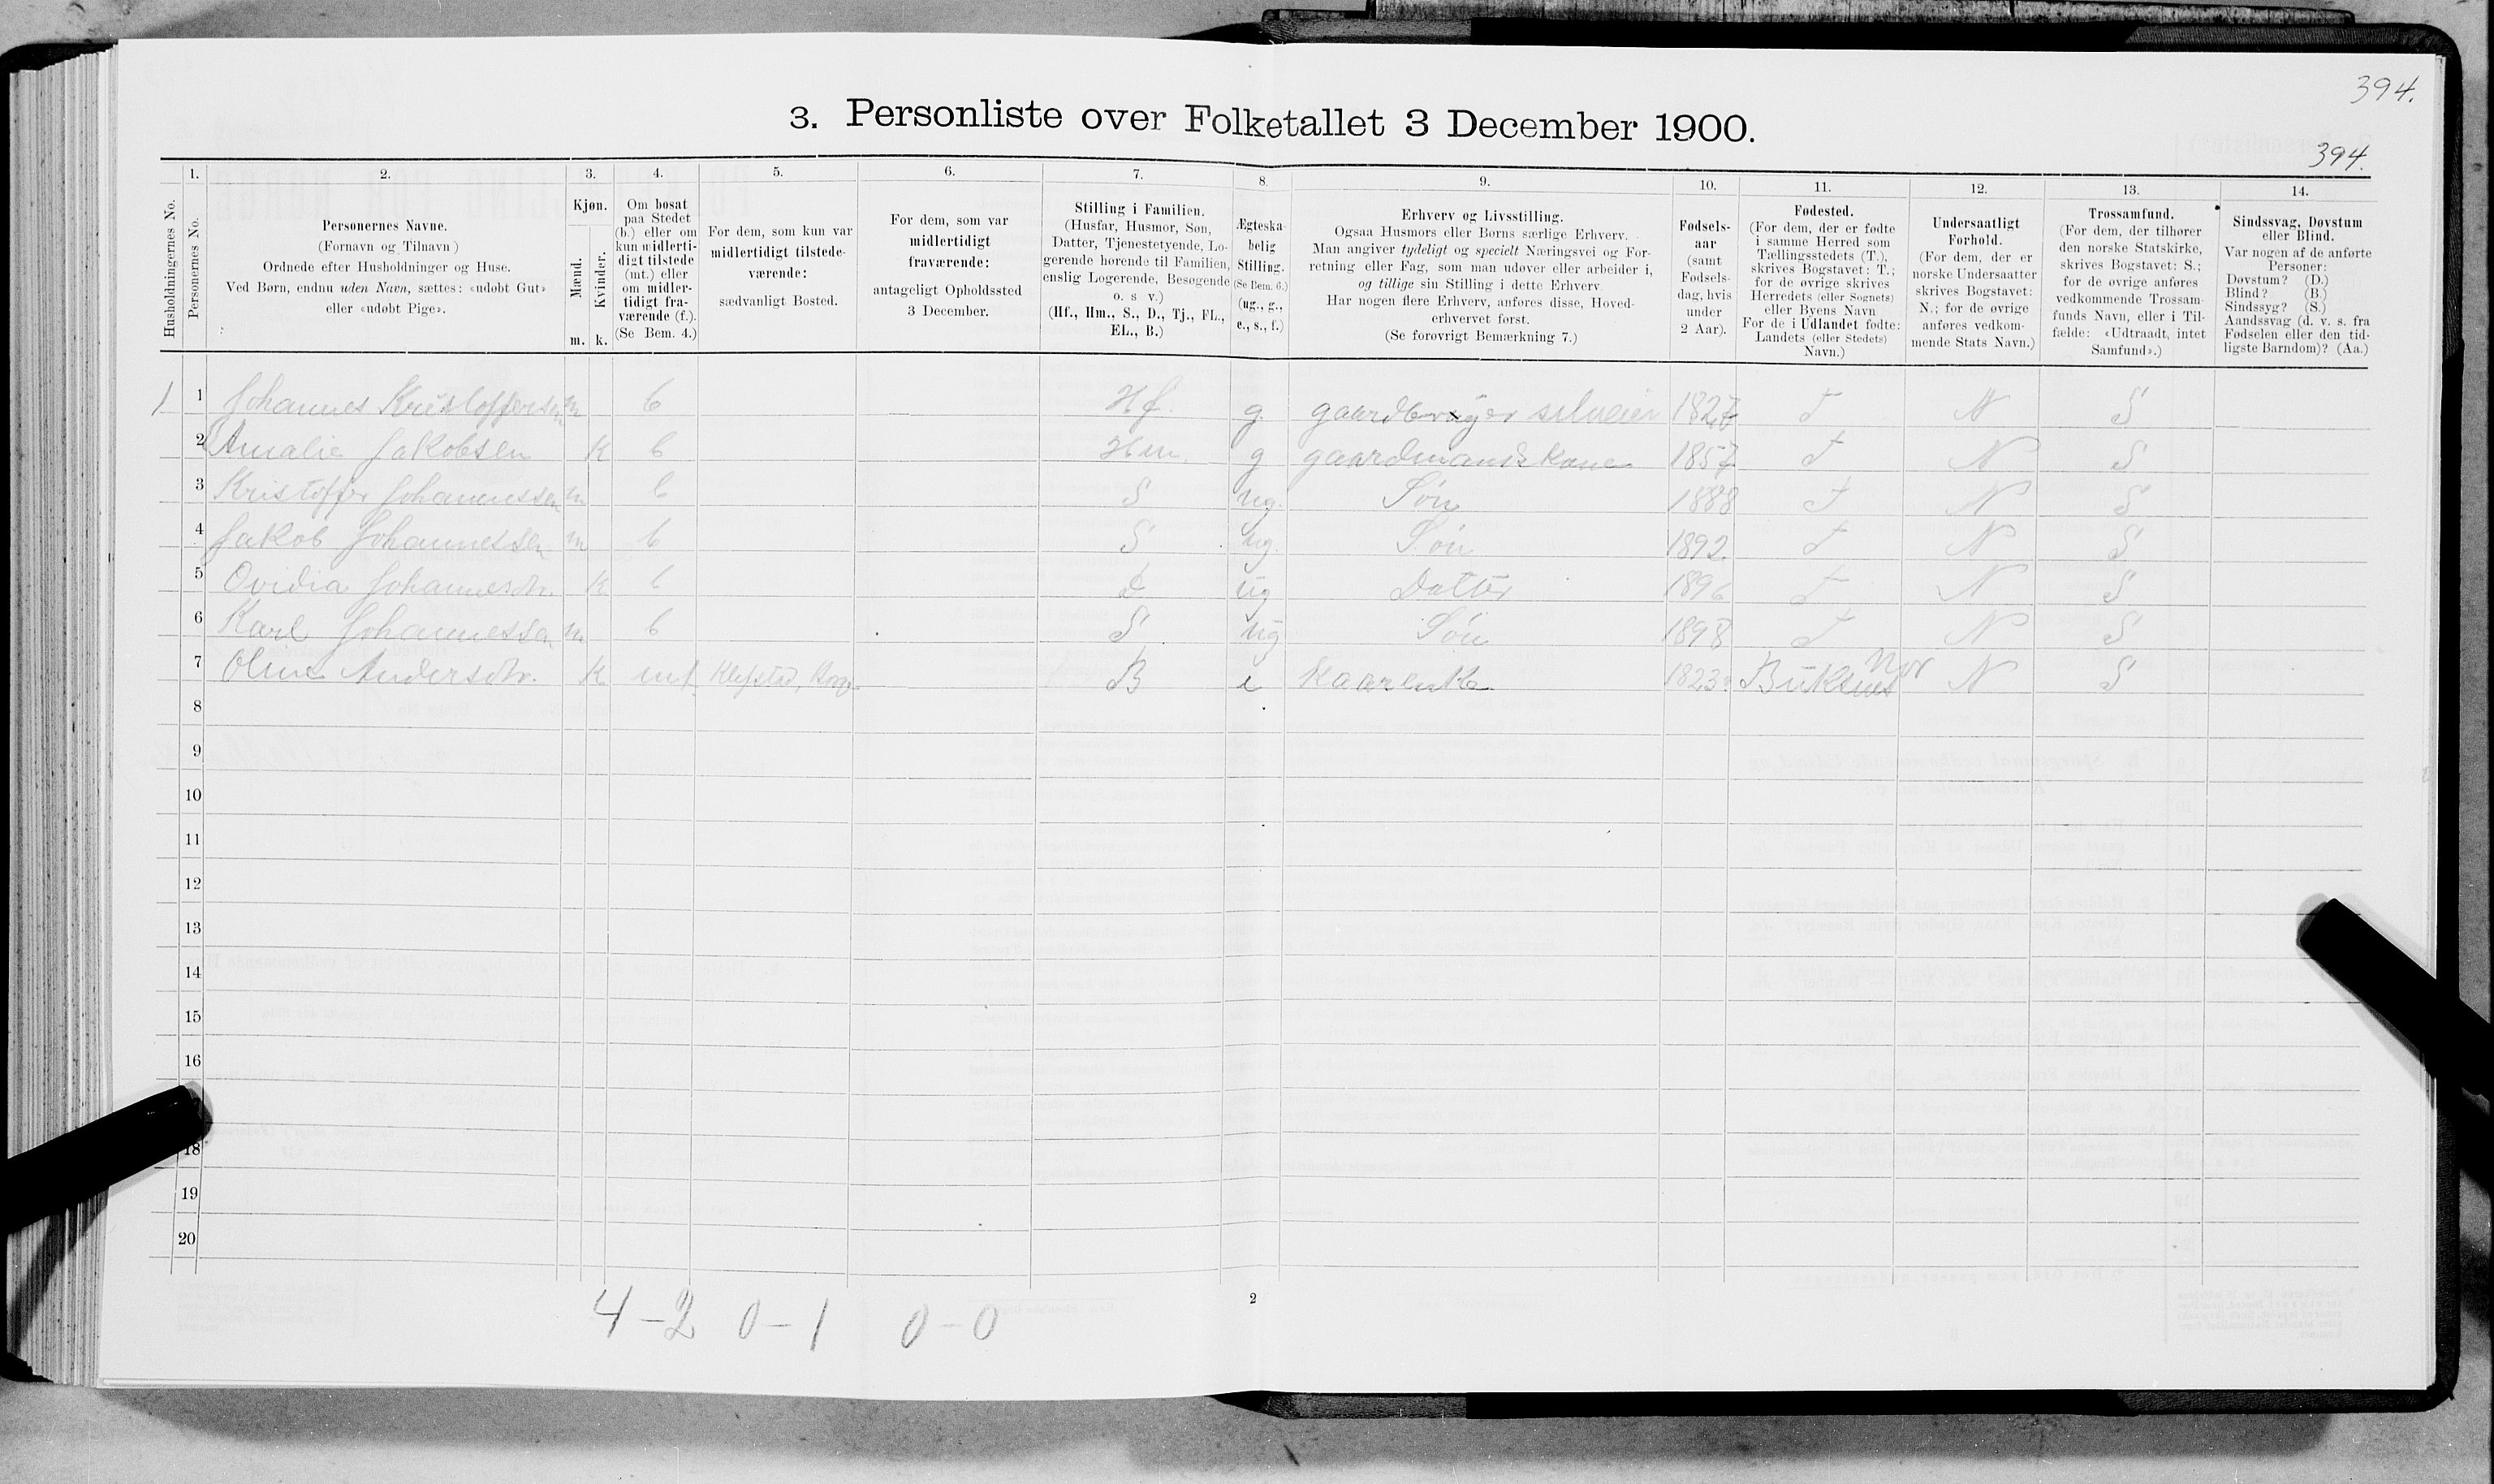 394.
3. Personliste over Folketallet 3 December 1900.
394.
Husholdningernes No.
1.
Personernes No.
2.
Personernes Navne.
(Fornavn og Tilnavn)
Ordnede efter Husholdninger og Huse.
Ved Børn, endnu uden Navn, sættes: «udøbt Gut»
eller «udøbt Pige».
3.
Kjøn.
Mænd.
Kvinder.
m. k.
4.
Om bosat
paa Stedet
(b.) eller om
kun midlerti-
digt tilstede
(mt.) eller
om midler-
tidigt fra-
værende (f.).
(Se Bem. 4.)
5.
For dem, som kun var
midlertidigt tilstede-
værende:
sædvanligt Bosted.
6.
For dem, som var
midlertidigt
fraværende:
antageligt Opholdssted
3 December.
7.
Stilling i Familien.
(Husfar, Husmor, Søn,
Datter, Tjenestetyende, Lo-
gerende hørende til Familien,
enslig Logerende, Besøgende
o. s v.)
(Hf., Hm., S., D., Tj., FL.,
EL., B.)
8.
Ægteska-
belig
Stilling.
(Se Bem. 6.)
(ug., g.,
e., s., f.)
9.
Erhverv og Livsstilling.
Ogsaa Husmors eller Børns særlige Erhverv.
Man angiver tydeligt og specielt Næringsvei og For-
retning eller Fag, som man udøver eller arbeider i,
og tillige sin Stilling i dette Erhverv.
Har nogen flere Erhverv, anføres disse, Hoved-
erhvervet først.
(Se forøvrigt Bemærkning 7.)
10.
Fødsels-
aar
(samt
Fødsels-
dag, hvis
under
2 Aar).
11.
Fødested.
(For dem, der er fødte
i samme Herred som
Tællingsstedets (T.),
skrives Bogstavet: T.;
for de øvrige skrives
Herredets (eller Sognets)
eller Byens Navn
For de i Udlandet fødte:
Landets (eller Stedets)
Navn.)
12.
Undersaatligt
Forhold.
(For dem, der er
norske Undersaatter
skrives Bogstavet:
N.; for de øvrige
anføres vedkom-
mende Stats Navn.)
13.
Trossamfund.
(For dem, der tilhører
den norske Statskirke,
skrives Bogstavet: S.;
for de øvrige anføres
vedkommende Trossam-
funds Navn, eller i Til-
fælde: «Udtraadt, intet
Samfund».)
14.
Sindssvag, Døvstum
eller Blind.
Var nogen af de anførte
Personer:
Døvstum? (D.)
Blind? (B.)
Sindssyg? (S.)
Aandssvag (d. v. s. fra
Fødselen eller den tid-
ligste Barndom)? (Aa.)
1 1 Johannes Kristoffersen m b Hf. g gaardbruger selveier 1827 T N S
2 Amalie Jakobsen k b Hm. g gaardmandskone 1857 T N S
3 Kristoffer Johannessen m b S ug. Søn 1888 T N S
4 Jakob Johannessen m b S ug. Søn 1892 T N S
5 Ovidia Johannesdtr. k b D ug Datter 1896 T N S
6 Karl Johannessen m b S ug Søn 1898 T N S
7 Andersdtr. k mt B e Kaarenke 1823 Buksnes Nor N S
8
9
10
11
12
13
14
15
16
18
19
20
4-2 0-1 0-0
2